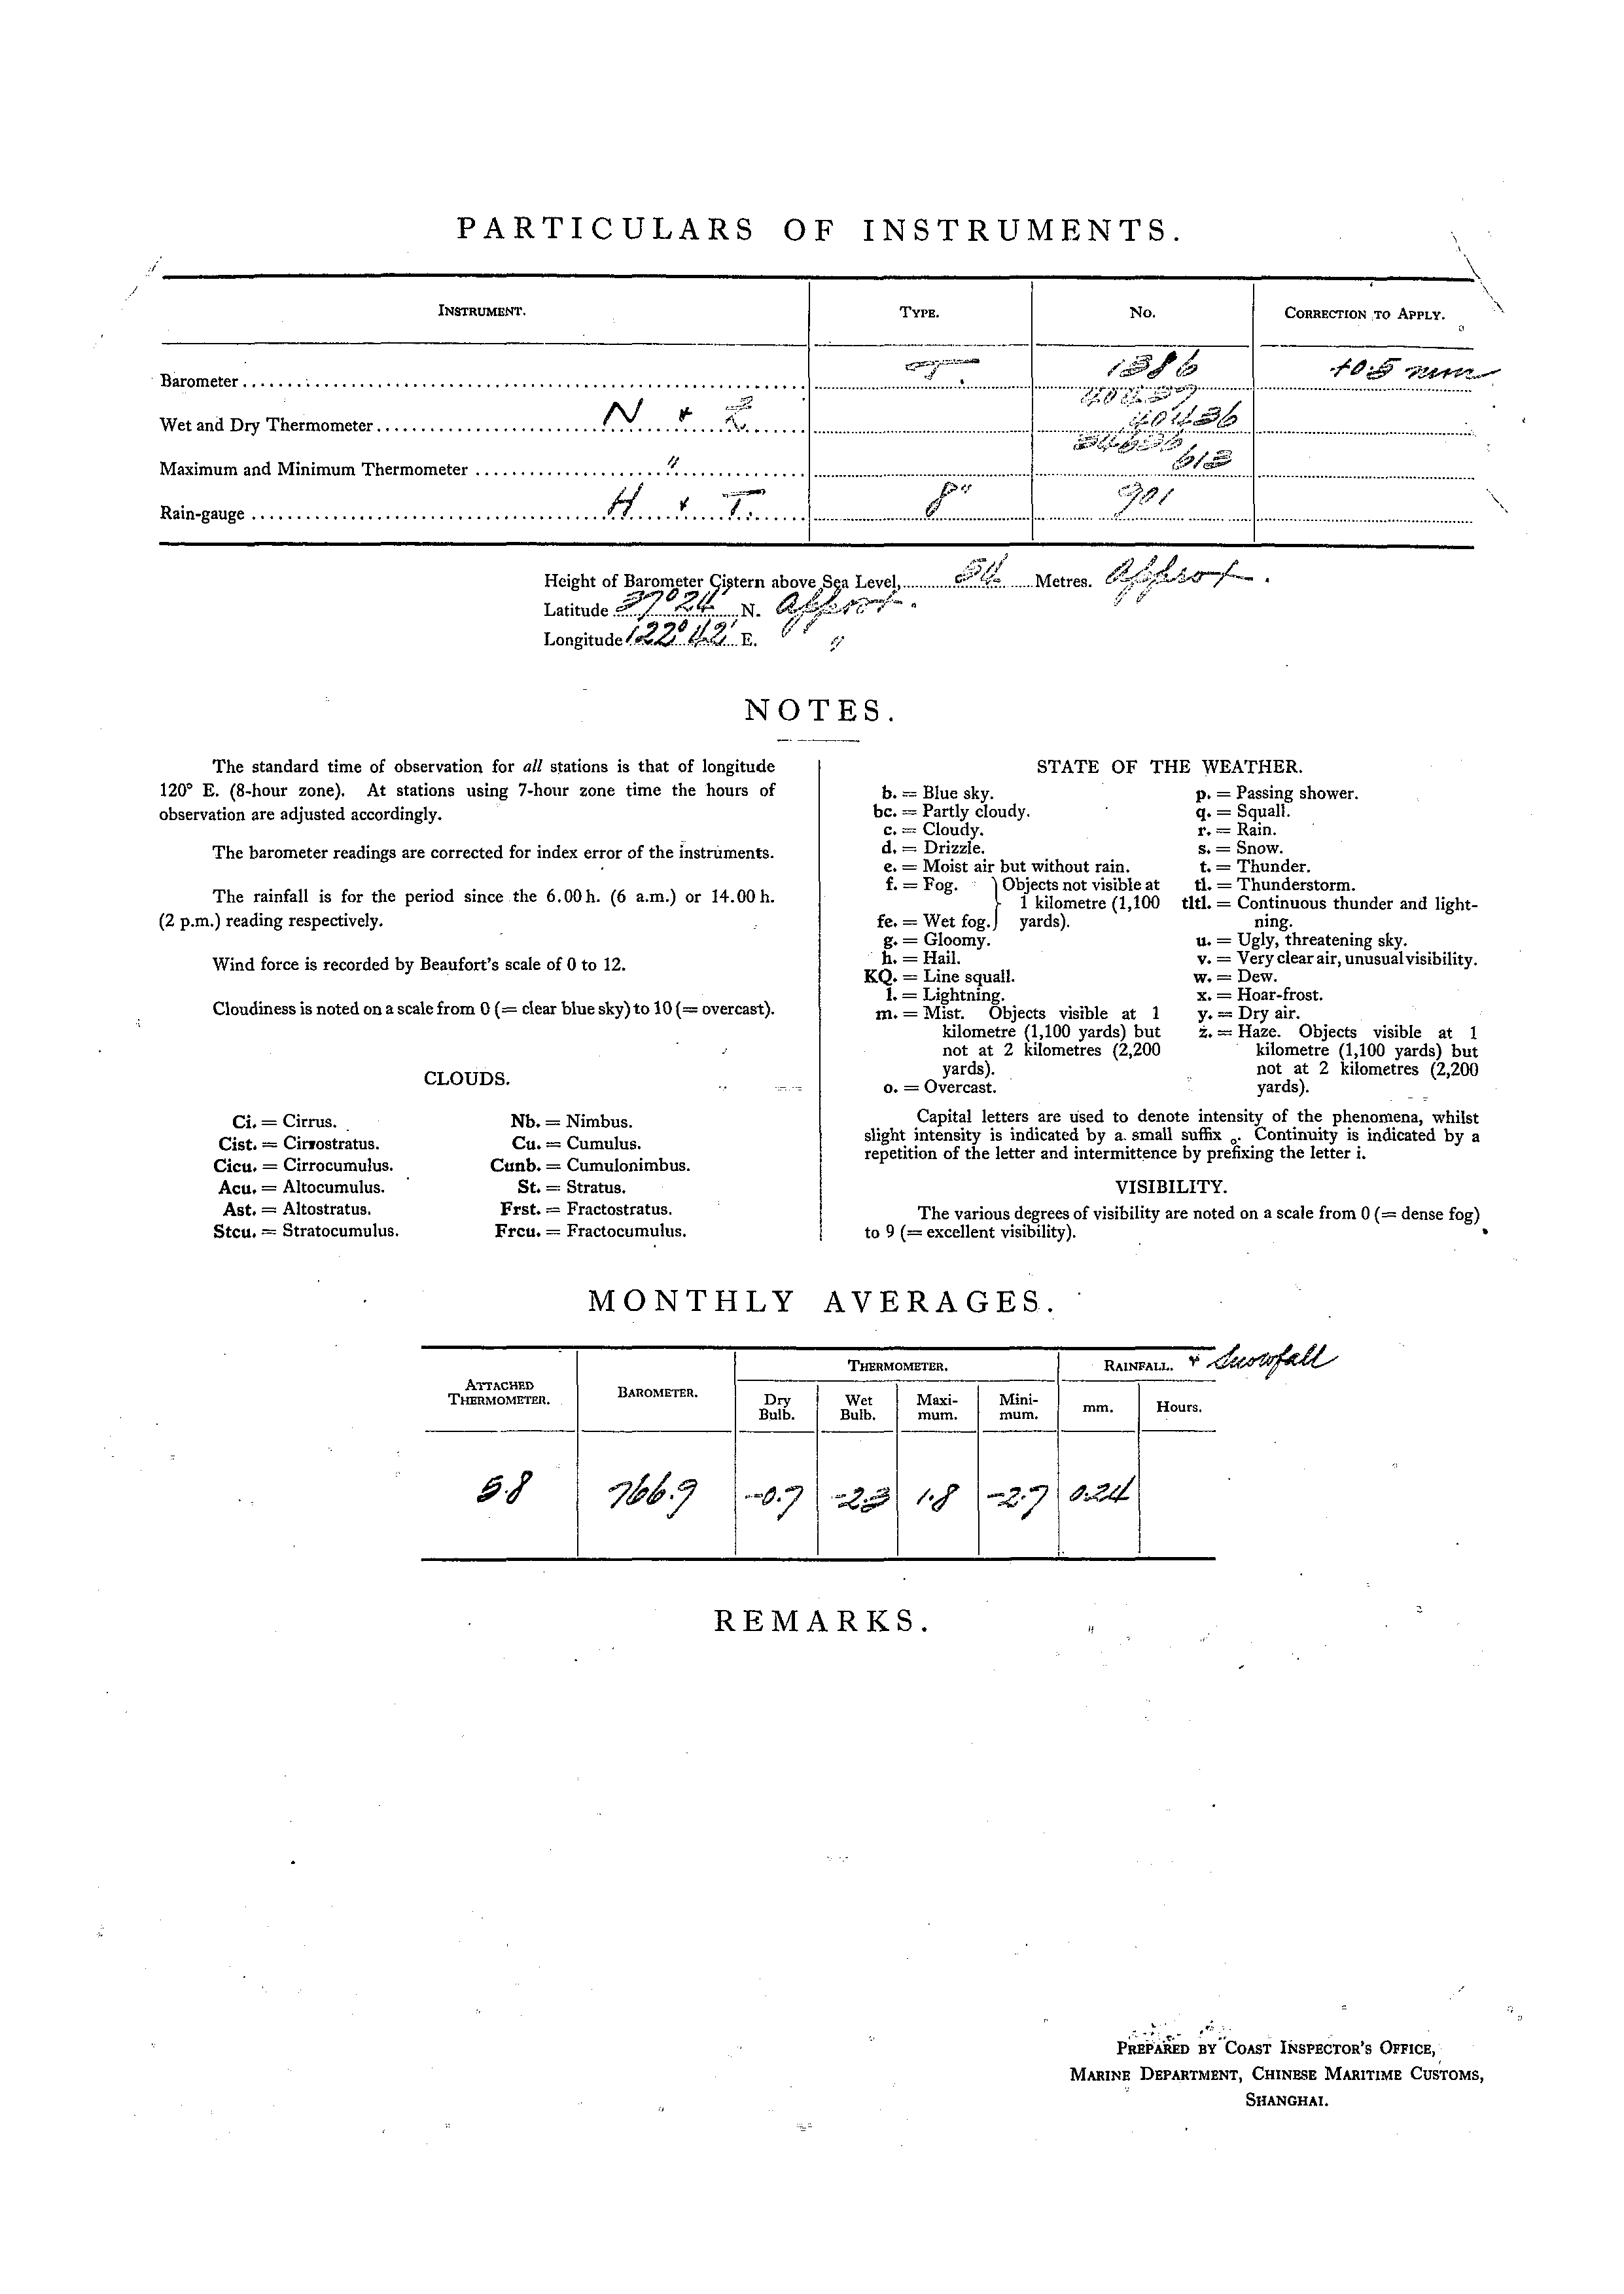 PARTICULARS OF INSTRUMENTS.
INSTRUMENT. TYPE. No. CORRECTION TO APPLY.
Barometer 1386 +0.5 mm
Wet and Dry Thermometer N & Z 40436
Maximum and Minimum Thermometer " 613
Rain-gauge H & T. 8" 901
Height of Barometer Cistern above Sea Level, 54 Metres. Approx.
Latitude 37° 24' N. Approx.
Longitude 122° 42' E. " "
NOTES.
The standard time of observation for all stations is that of longitude
120° E. (8-hour zone). At stations using 7-hour zone time the hours of
observation are adjusted accordingly.
The barometer readings are corrected for index error of the instruments.
The rainfall is for the period since the 6.00 h. (6 a.m.) or 14.00 h.
(2 p.m.) reading respectively.
Wind force is recorded by Beaufort's scale of 0 to 12.
Cloudiness is noted on a scale from 0 (= clear blue sky) to 10 (= overcast).
CLOUDS.
Ci. = Cirrus. Nb. = Nimbus.
Cist. = Cirrostratus. Cu. = Cumulus.
Cicu. = Cirrocumulus. Cunb. = Cumulonimbus.
Acu. = Altocumulus. St. = Stratus.
Ast. = Altostratus. Frst. = Fractostratus.
Stcu. = Stratocumulus. Frcu. = Fractocumulus.
STATE OF THE WEATHER.
b. = Blue sky.
bc. = Partly cloudy.
c. = Cloudy.
d. = Drizzle.
e. = Moist air but without rain.
f. = Fog. } Objects not visible at
1 kilometre (1,100
fe. = Wet fog. yards).
g. = Gloomy.
h. = Hail.
KQ. = Line squall.
l. = Lightning.
m. = Mist. Objects visible at 1
kilometre (1,100 yards) but
not at 2 kilometres (2,200
yards).
o. = Overcast.
p. = Passing shower.
q. = Squall.
r. = Rain.
s. = Snow.
t. = Thunder.
tl. = Thunderstorm.
tltl. = Continuous thunder and light-
ning.
u. = Ugly, threatening sky.
v. = Very clear air, unusual visibility.
w. = Dew.
x. = Hoar-frost.
y. = Dry air.
z. = Haze. Objects visible at 1
kilometre (1,100 yards) but
not at 2 kilometres (2,200
yards).
Capital letters are used to denote intensity of the phenomena, whilst
slight intensity is indicated by a small suffix o. Continuity is indicated by a
repetition of the letter and intermittence by prefixing the letter i.
VISIBILITY.
The various degrees of visibility are noted on a scale from 0 (= dense fog)
to 9 (= excellent visibility).
MONTHLY AVERAGES.
ATTACHED THERMOMETER. BAROMETER. THERMOMETER. RAINFALL. & Snowfall
Dry Bulb. Wet Bulb. Maxi-mum. Mini-mum. mm. Hours.
5.8 766.9 -0.7 -2.3 1.8 -2.7 0.24
REMARKS.
PREPARED BY COAST INSPECTOR'S OFFICE,
MARINE DEPARTMENT, CHINESE MARITIME CUSTOMS,
SHANGHAI.